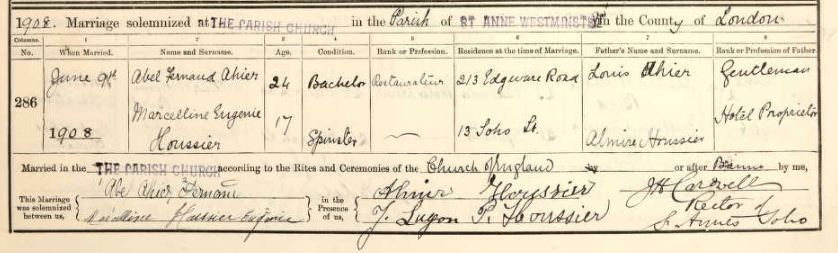 1908. Marriage solemnized at THE PARISH CHURCH in the Parish of ST ANNE WESTMINSTER in the County of London
Columns. 1 2 3 4 5 6 7 8
No. When Married. Name and Surname. Age. Condition. Rank or Profession. Residence at the time of Marriage. Father's Name and Surname. Rank or Profession of Father.
286 June 9th 1908 Abel Fernand Ahier 24 Bachelor Restaurateur 213 Edgware Road Louis Ahier Gentleman
Marcelline Eugenie Houssier 17 Spinster — 13 Soho St. Almire Houssier Hotel Proprietor
Married in the THE PARISH CHURCH according to the Rites and Ceremonies of the Church of England by or after Banns by me,
This Marriage was solemnized between us, Abel Ahier Fernand in the Presence of us, Almire Houssier J H Cardwell
Marcelline Houssier Eugenie J. Lugon P. Houssier Rector of
St Annes Soho